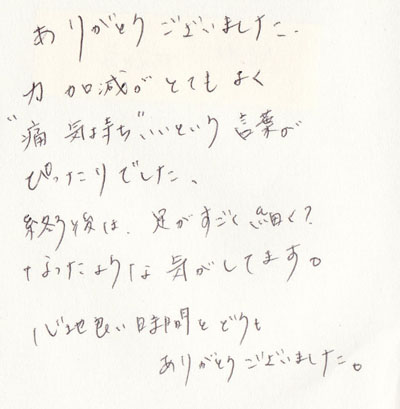 ありがとうございました.
力加減がとてもよく
"痛気持ち"いいという言葉が
ぴったりでした、
終了後は、足がすごく細く?
なったような気がしてます。
心地良い時間をどうも
ありがとうございました。